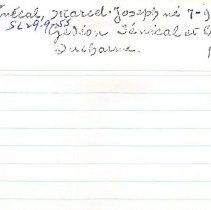 énécal, Marcel-Joseph né 7-9
SL 29-9-55 Gédéon Sénécal et
Ducharme.